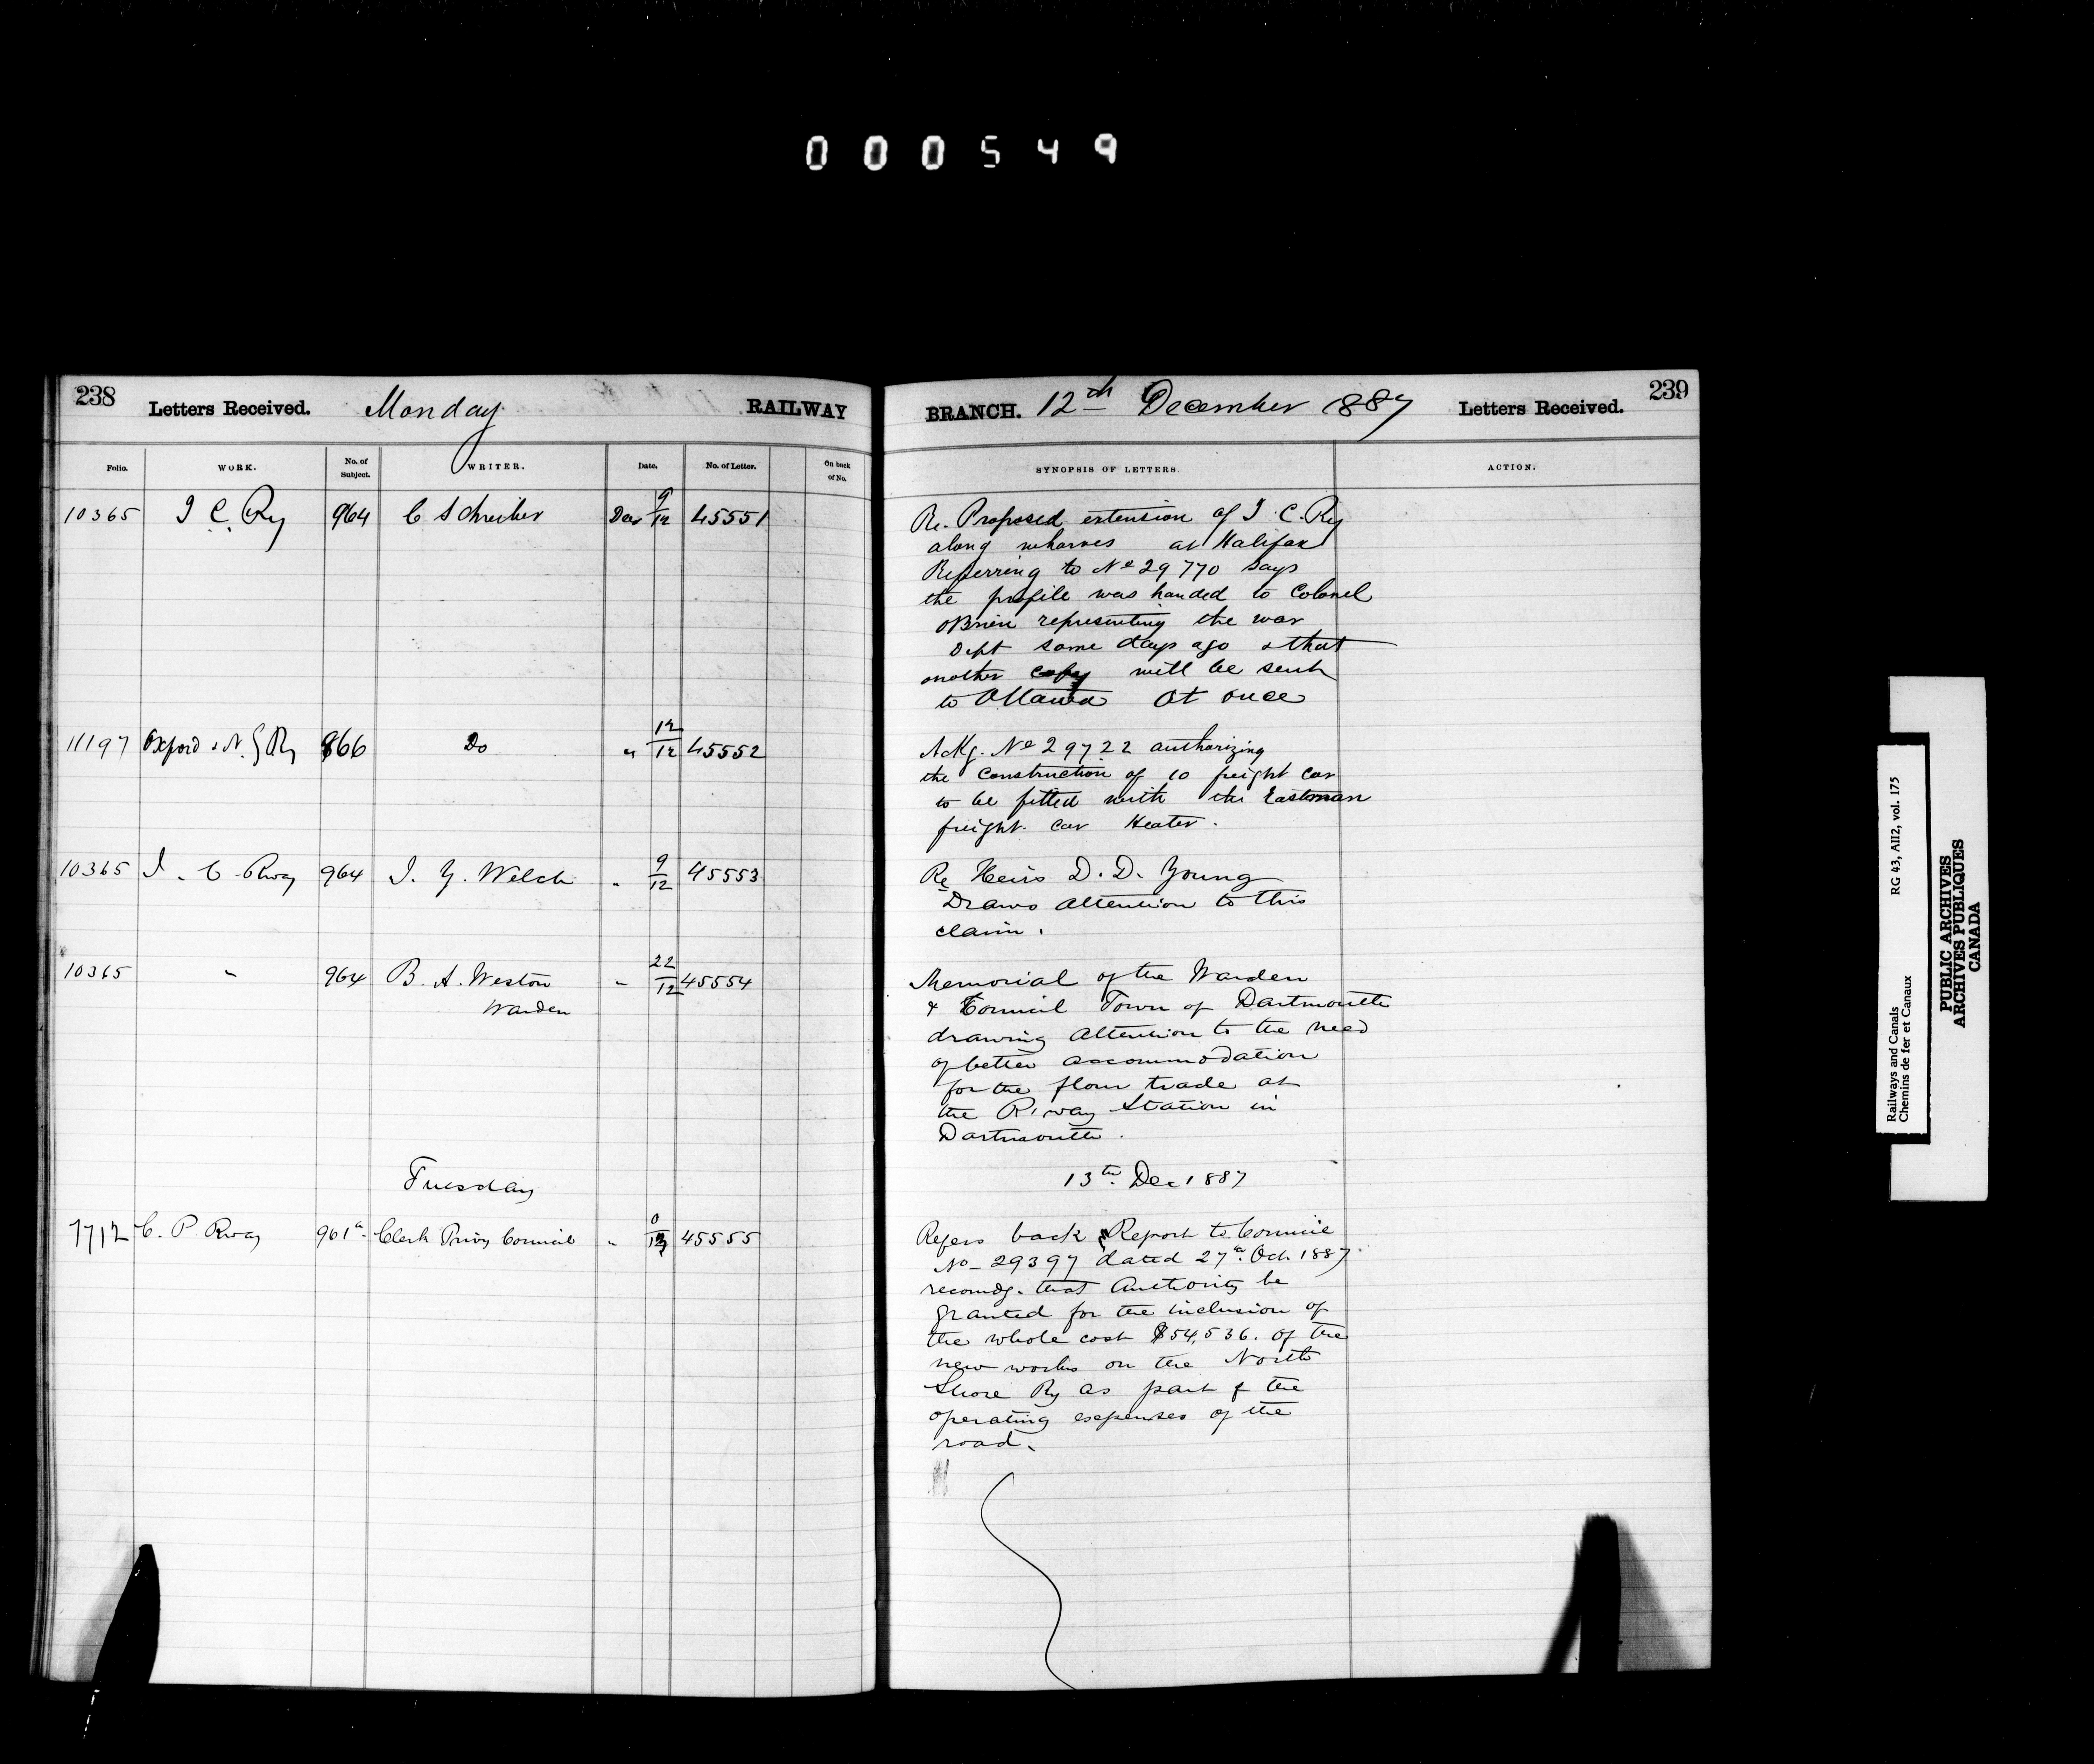 000549
238
Letters Received. Monday RAILWAY
Folio. WORK. No. of Subject. WRITER. Date. No. of Letter. On back of No.
10365 I C. Ry 964 C Schreiber Dec 9/12 45551
11197 Oxford & N. G Ry 866 Do " 12/12 45552
10365 I. C. Rway 964 I. Y. Welch " 9/12 45553
10365 " 964 B. A. Weston " 22/12 45554
Warden
Tuesday
7712 C. P. Rway 961a Clerk Privy Council " 45555
BRANCH. 12th December 1887 Letters Received.
239
SYNOPSIS OF LETTERS. ACTION.
Re. Proposed extension of I. C. Ry
along wharves at Halifax
Referring to No 29770 says
the profile was handed to Colonel
OBrien representing the war
Dept some days ago & that
another copy will be sent
to Ottawa at once
Ackg. No 29722 authorizing
the construction of 10 freight car
to be fitted with the Eastman
freight car Heater.
Re Heirs D. D. Young
Draws attention to this
claim.
Memorial of the Warden
& Council Town of Dartmouth
drawing attention to the need
of better accommodation
for the flour trade at
the R. way Station in
Dartmouth.
13th Dec 1887
Refers back Report to Council
No 29397 dated 27th Oct 1887
recomdg. that Authority be
granted for the inclusion of
the whole cost $54,536. of the
new works on the North
Shore Ry as part of the
operating expenses of the
road.
Railways and Canals
Chemins de fer et Canaux
RG 43, AII2, vol. 175
PUBLIC ARCHIVES
ARCHIVES PUBLIQUES
CANADA